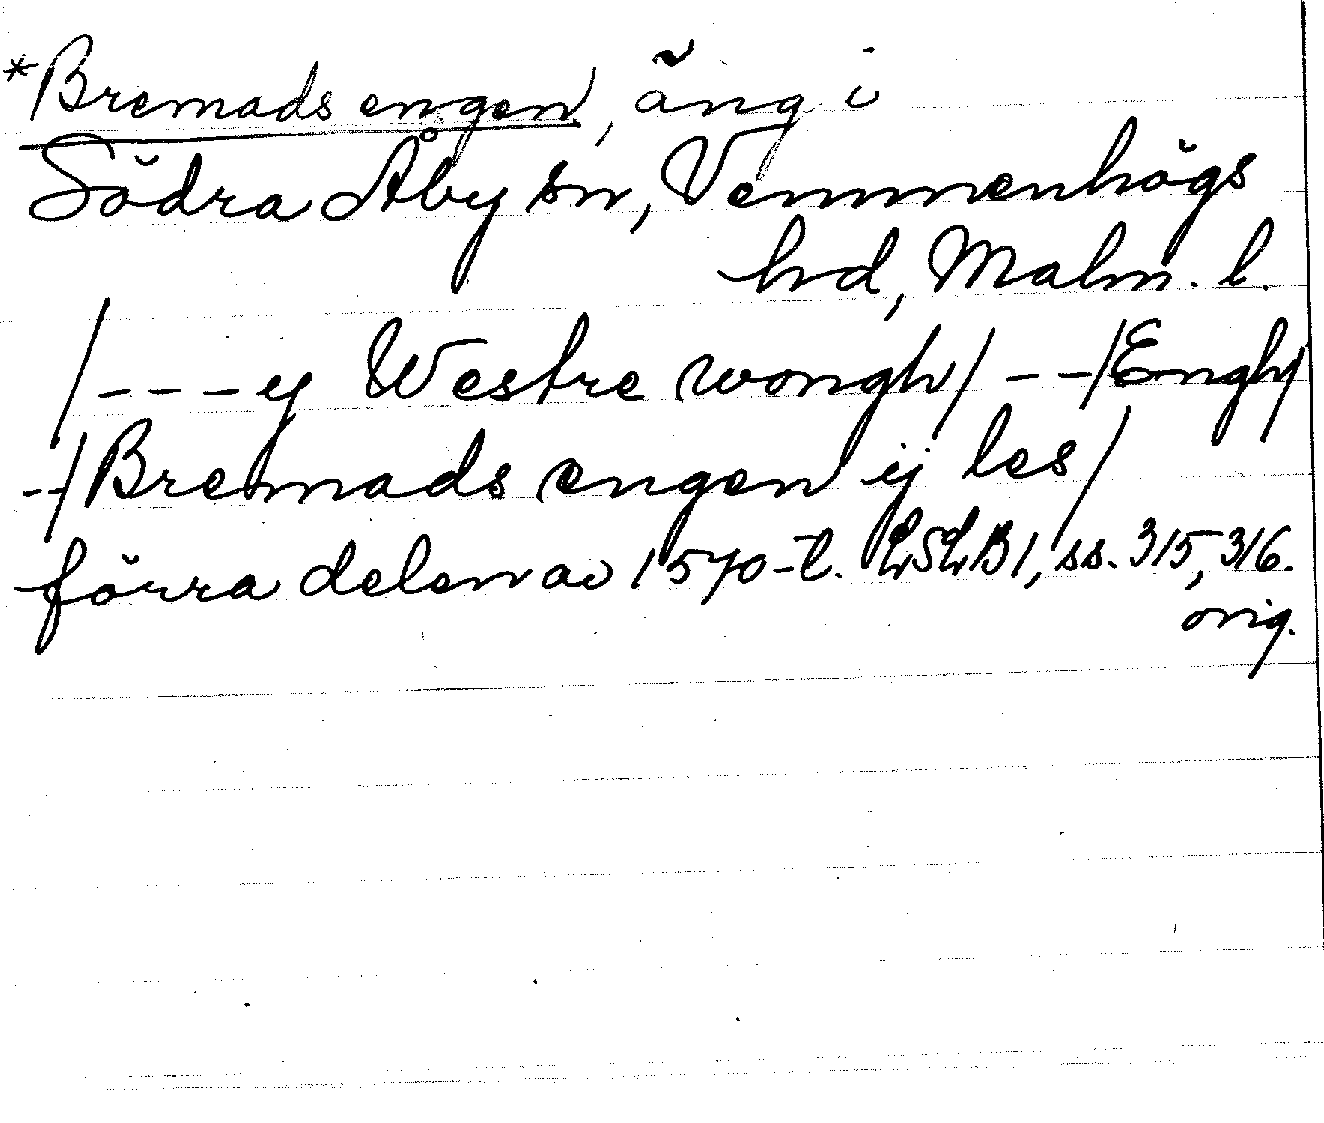 *Bremads engen, äng i
Södra Åby sn, Vemmenhögs
hd, Malm. l.
/---y Westre wongh/ --/Engh/
--/Bremads engen ij les/
förra delen av 1570-t. LSLB1, ss. 315, 316.
orig.